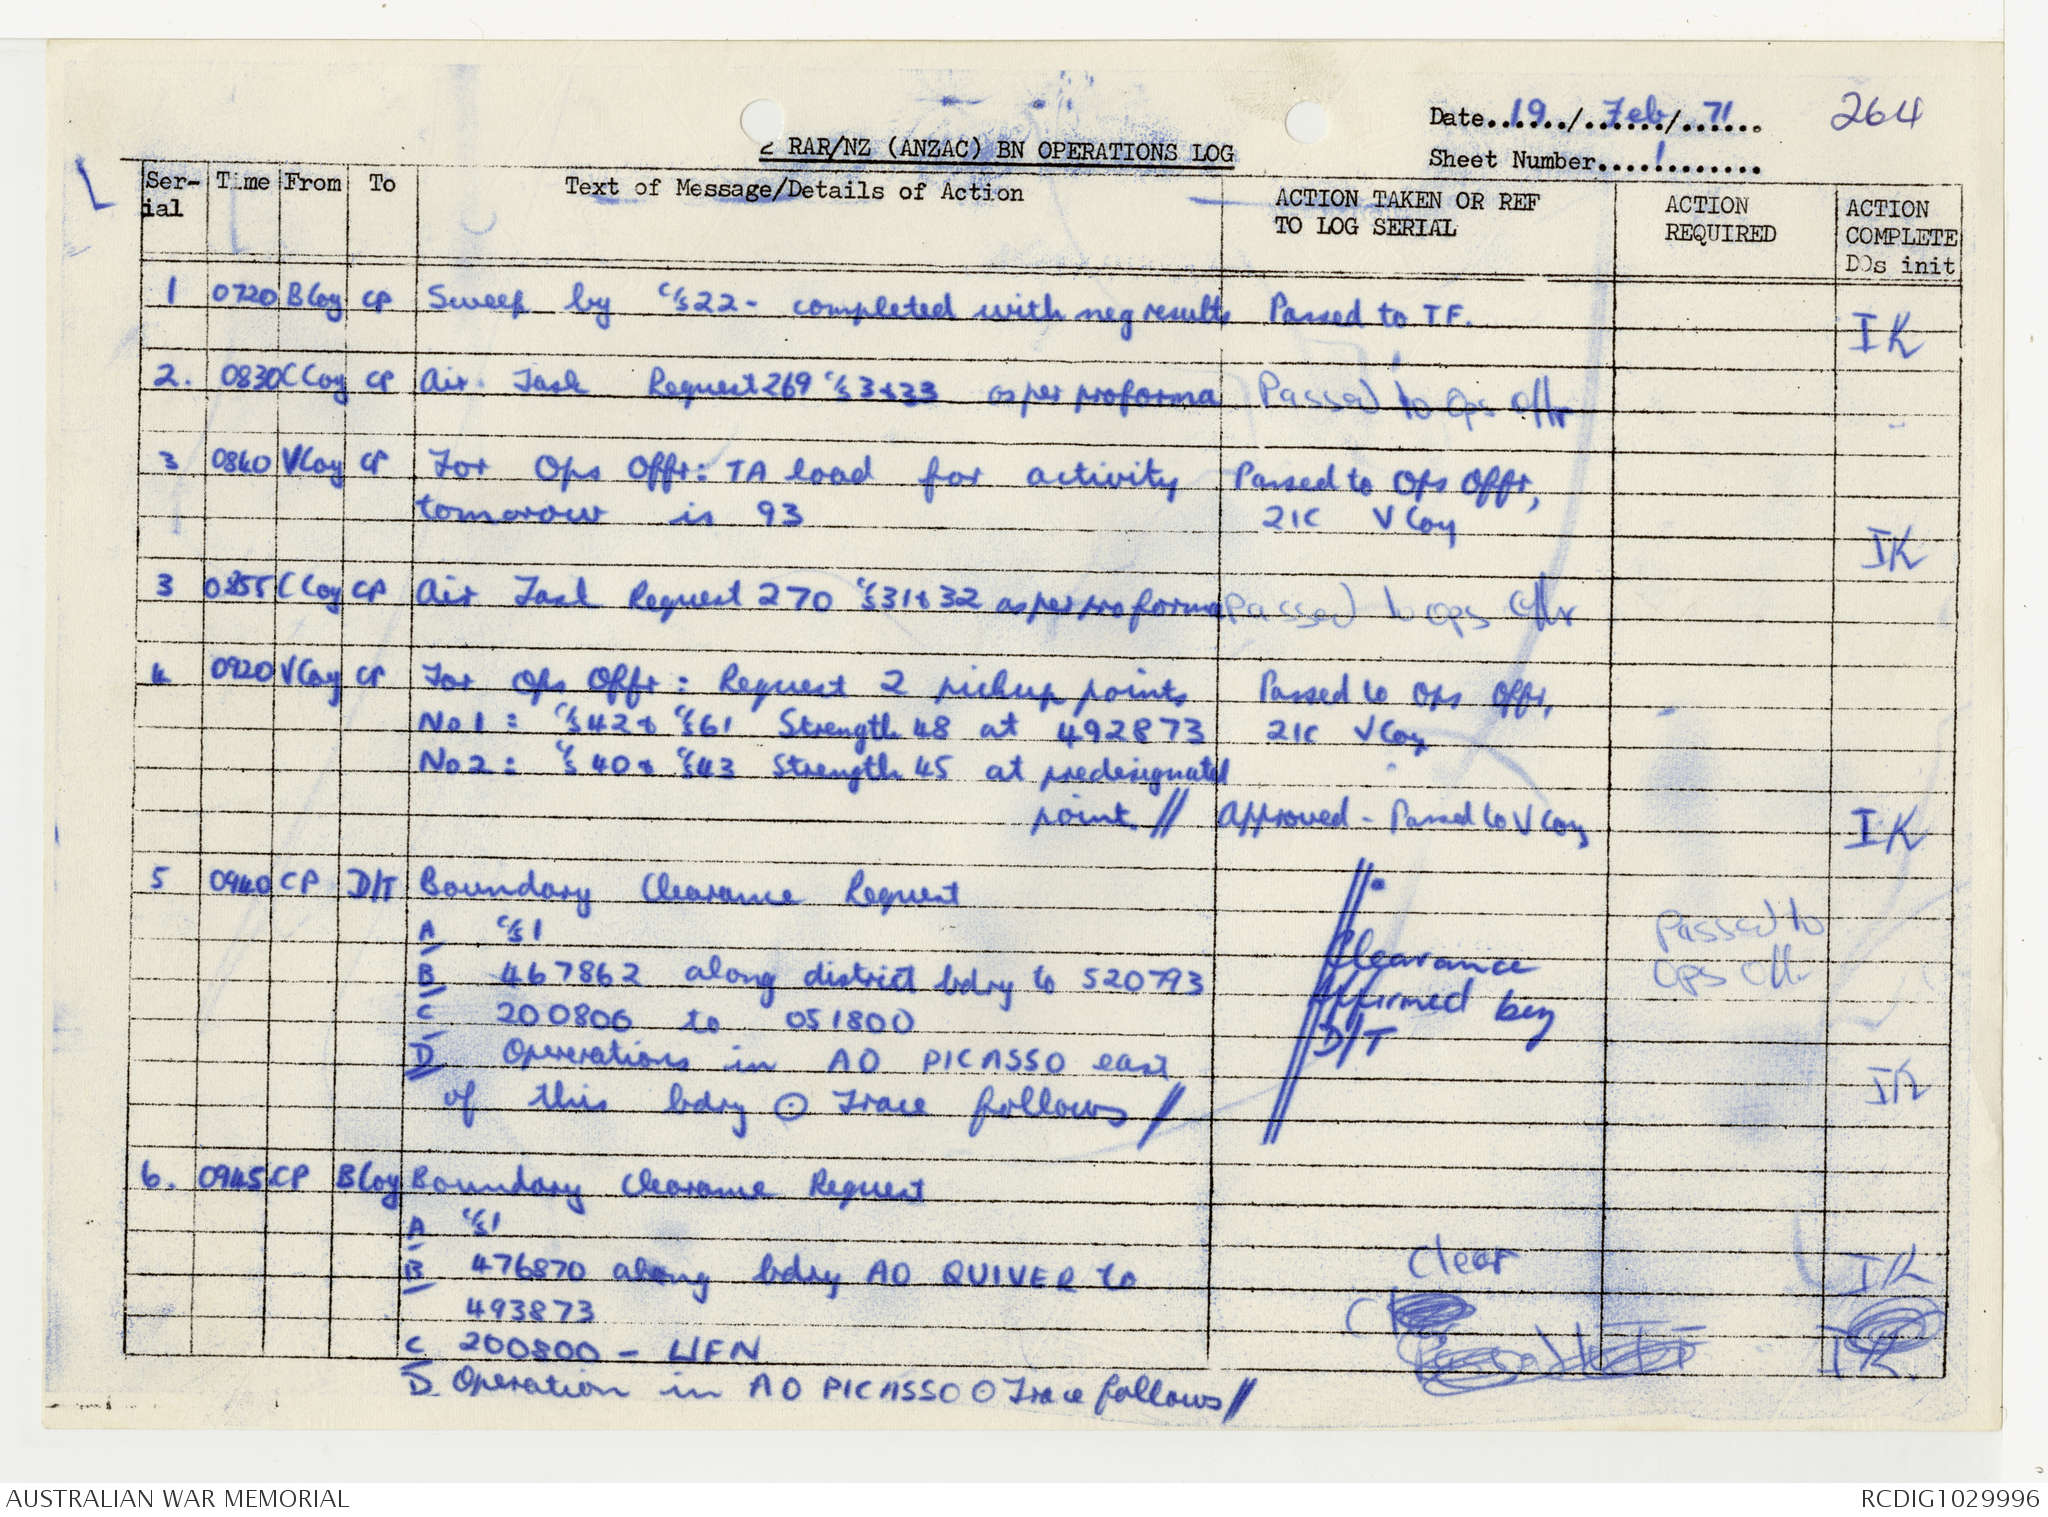 Date..19../..Feb../..71..
264
2 RAR/NZ (ANZAC) BN OPERATIONS LOG
Sheet Number....1............
Ser-ial Time From To Text of Message/Details of Action ACTION TAKEN OR REF TO LOG SERIAL ACTION REQUIRED ACTION COMPLETE DOs init
1 0720 B Coy CP Sweep by C/S 22 - completed with neg results Passed to TF.
IK
2. 0830 C Coy CP Air Task Request 269 C/S 3 & 33 as per proforma Passed to Ops Offr
3 0840 V Coy CP For Ops Offr: TA load for activity Passed to Ops Offr,
tomorrow is 93 21C V Coy
IK
3 0855 C Coy CP Air Task Request 270 C/S 31 & 32 as per proforma Passed to Ops Offr
4 0920 V Coy CP For Ops Offr: Request 2 pickup points Passed to Ops Offr,
No 1: C/S 42 & C/S 61 Strength 48 at 492873 21C V Coy
No 2: C/S 40 & C/S 43 Strength 45 at predesignated
point. // Approved - Passed to V Coy IK
5 0940 CP D/T Boundary Clearance Request
A C/S 1 Clearance Passed to
B 467862 along district bdry to 520793 Affirmed by Ops Offr
C 200800 to 051800 D/T
D Opererations in AO PICASSO east
of this bdry ⊙ Trace follows // IK
6. 0945 CP B Coy Boundary Clearance Request
A C/S 1
B 476870 along bdry AO QUIVER to Clear IK
493873
C 200800 - UFN IK.
D Operation in AO PICASSO ⊙ Trace follows //
AUSTRALIAN WAR MEMORIAL
RCDIG1029996